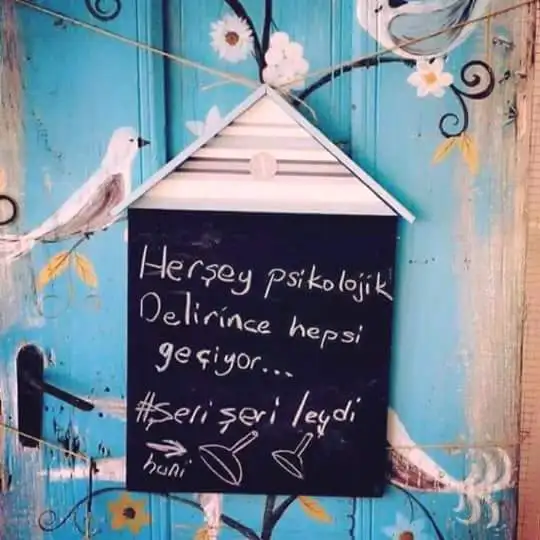 Herşey psikolojik
Delirince hepsi
geçiyor...
#şeri şeri leydi
→ huni